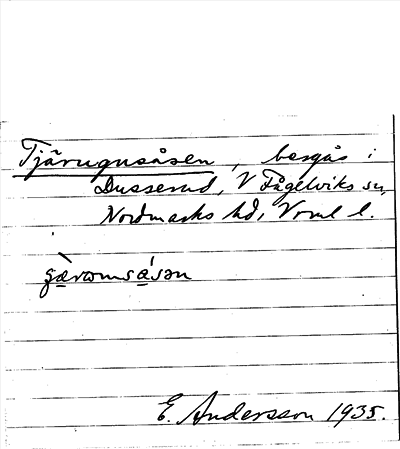 Tjärugnsåsen, bergås i
Dusserud, V Fågelviks sn,
Nordmarks hd, Vrml l.
E. Andersson 1935.